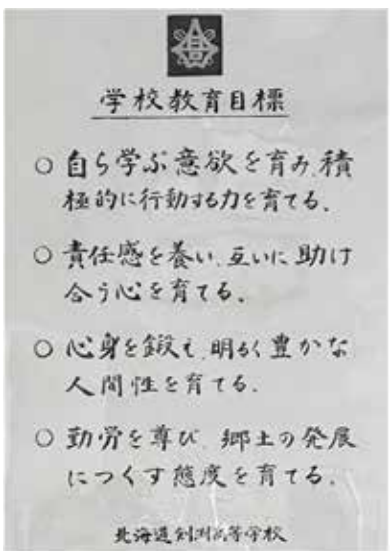 学校教育目標
○ 自ら学ぶ意欲を育み、積
極的に行動する力を育てる。
○ 責任感を養い、互いに助け
合う心を育てる。
○ 心身を鍛え、明るく豊かな
人間性を育てる。
○ 勤労を尊び、郷土の発展
につくす態度を育てる。
北海道剣淵高等学校